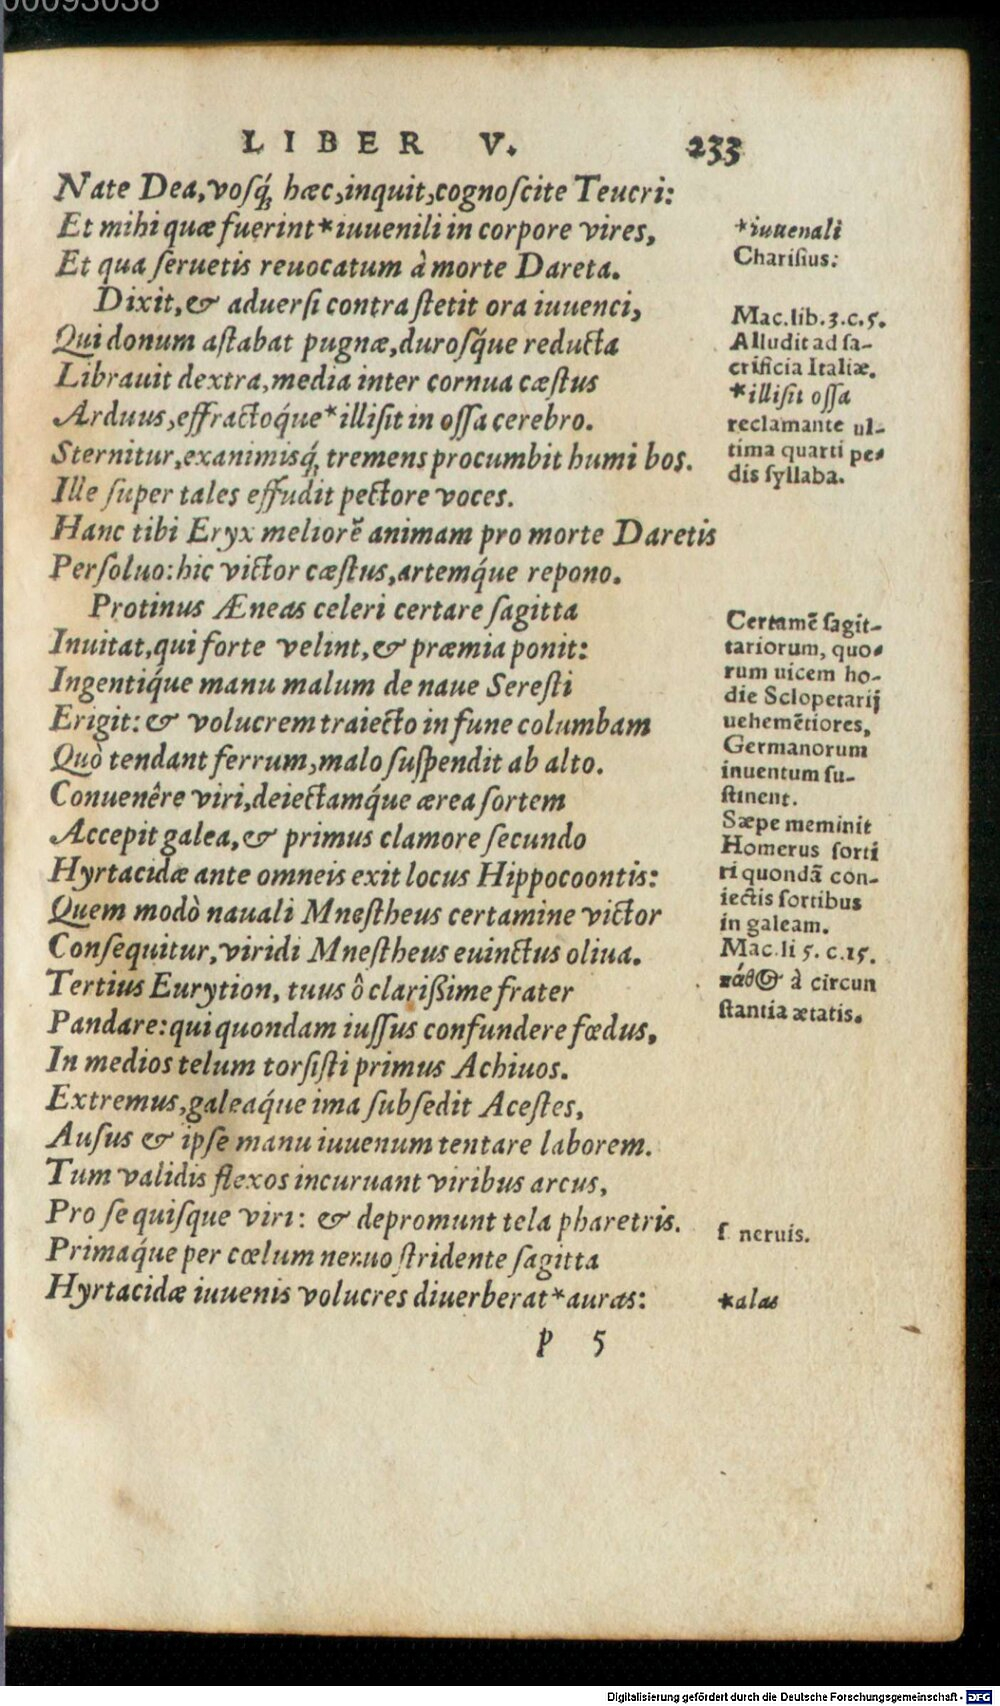 00093038
LIBER V. 233
Nate Dea, vosq́; hæc, inquit, cognoſcite Teucri:
Et mihi quæ fuerint *iuuenili in corpore vires,
Et qua ſeruetis reuocatum à morte Dareta.
Dixit, & aduerſi contra ſtetit ora iuuenci,
Qui donum aſtabat pugnæ, duroſq́ue reducta
Librauit dextra, media inter cornua cæſtus
Arduus, effractoq́ue *illiſit in oſſa cerebro.
Sternitur, exanimisq́; tremens procumbit humi bos.
Ille ſuper tales effudit pectore voces.
Hanc tibi Eryx meliorẽ animam pro morte Daretis
Perſoluo: hic victor cæſtus, artemq́ue repono.
Protinus Æneas celeri certare ſagitta
Inuitat, qui forte velint, & præmia ponit:
Ingentiq́ue manu malum de naue Sereſti
Erigit: & volucrem traiecto in fune columbam
Quò tendant ferrum, malo ſuſpendit ab alto.
Conuenêre viri, deiectamq́ue ærea ſortem
Accepit galea, & primus clamore ſecundo
Hyrtacidæ ante omneis exit locus Hippocoontis:
Quem modò nauali Mneſtheus certamine victor
Conſequitur, viridi Mneſtheus euinctus oliua.
Tertius Eurytion, tuus ô clarißime frater
Pandare: qui quondam iuſſus confundere fœdus,
In medios telum torſiſti primus Achiuos.
Extremus, galeaq́ue ima ſubſedit Aceſtes,
Auſus & ipſe manu iuuenum tentare laborem.
Tum validis flexos incuruant viribus arcus,
Pro ſe quiſque viri: & depromunt tela pharetris.
Primaq́ue per cœlum neruo ſtridente ſagitta
Hyrtacidæ iuuenis volucres diuerberat *auras:
p 5
*iuuenali
Chariſius:
Mac. lib. 3. c. 5.
Alludit ad ſa-
crificia Italiæ.
*illiſit oſſa
reclamante ul-
tima quarti pe-
dis ſyllaba.
Certamẽ ſagit-
tariorum, quo-
rum uicem ho-
die Sclopetarij
uehemẽtiores,
Germanorum
inuentum ſu-
ſtinent.
Sæpe meminit
Homerus ſorti
ri quondã con-
iectis ſortibus
in galeam.
Mac. li 5. c. 15.
πάθος à circun
ſtantia ætatis.
ſ neruis.
*alas
Digitalisierung gefördert durch die Deutsche Forschungsgemeinschaft - DFG